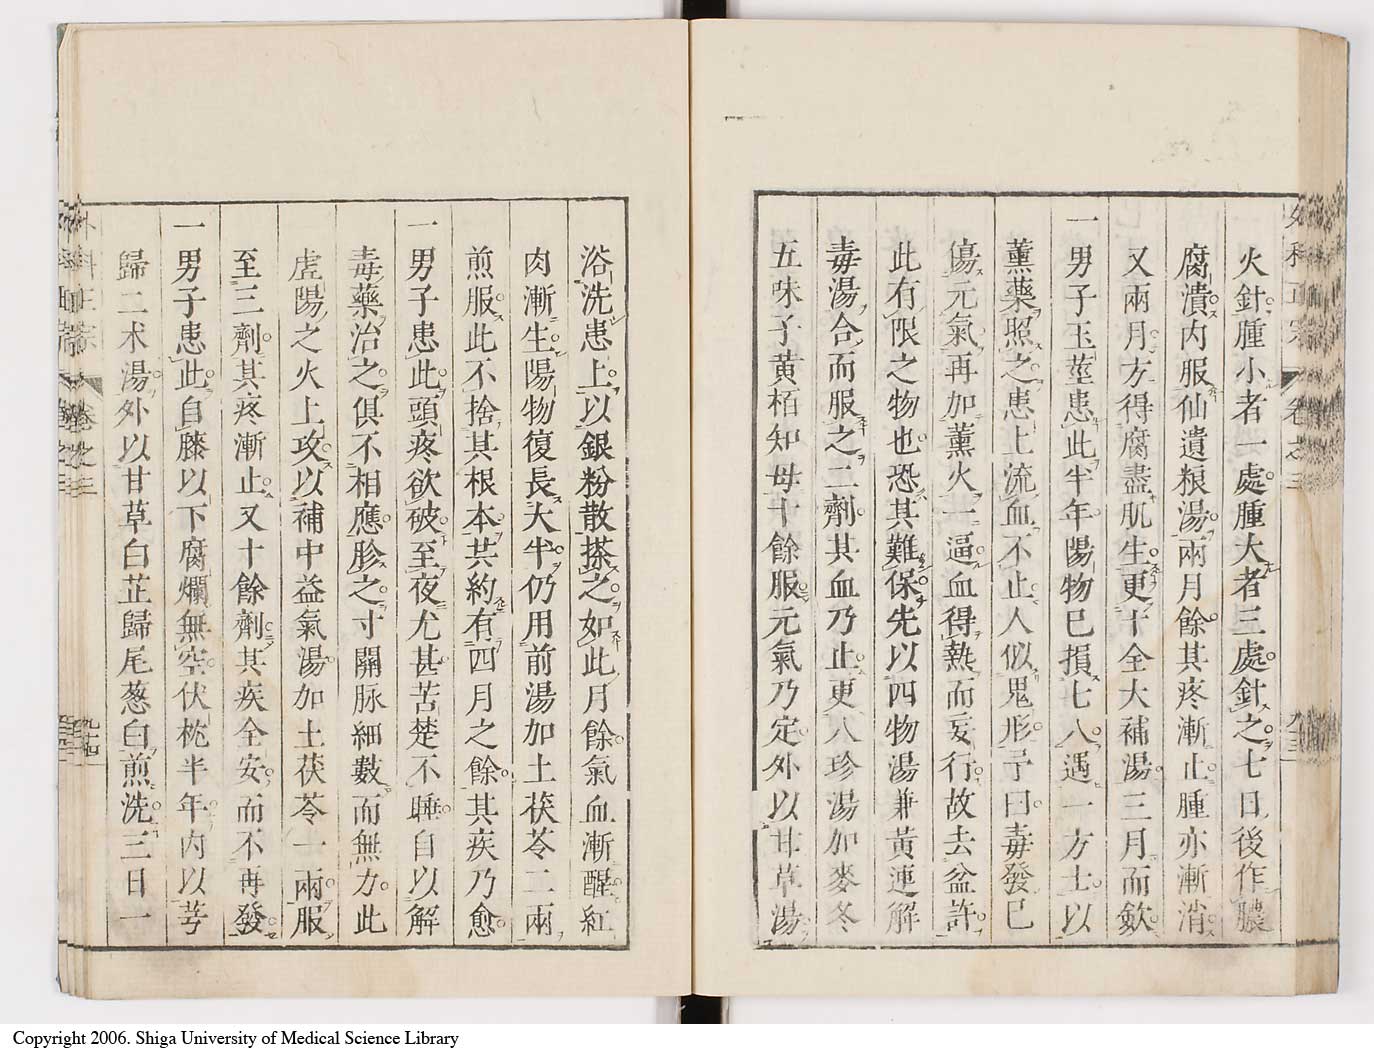 火針腫小者一處腫大者三處針之七日後作膿
腐潰内服仙遺粮湯兩月餘其疼漸止腫亦漸消
又兩月方得腐盡肌生更十全大補湯三月而斂
一男子玉莖患此半年陽物已損七八遇一方士以
薰藥照之患上流血不止人似鬼形予曰毒發已
傷元氣再加薰火一逼血得熱而妄行故去益許
此有限之物也恐其難保先以四物湯兼黃連解
毒湯合而服之二劑其血乃止更八珍湯加麥冬
五味子黄栢知母十餘服元氣乃定外以甘草湯
浴洗患上以銀粉散搽之如此月餘氣血漸醒紅
肉漸生陽物復長大半仍用前湯加土茯苓二兩
煎服此不捨其根本共約有四月之餘其疾乃愈
一男子患此頭疼欲破至夜尤甚苦楚不睡自以解
毒藥治之俱不相應胗之寸關脉細數而無力此
虚陽之火上攻以補中益氣湯加土茯苓一兩服
至三劑其疼漸止又十餘劑其疾全安而不再發
一男子患此自膝以下腐爛無空伏枕半年内以芎
歸二术湯外以甘草白芷歸尾葱白煎洗三日一
外科正宗
卷之三
九十四
Copyright 2006. Shiga University of Medical Science Library